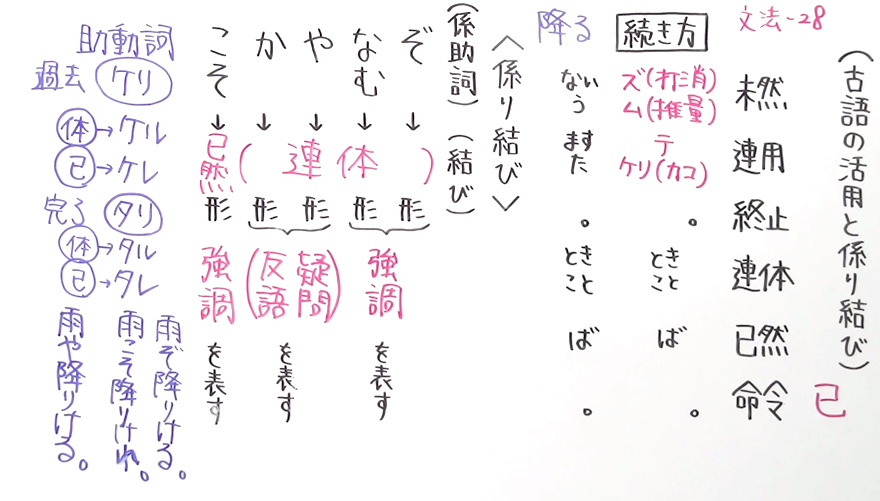 文法-28
(古語の活用と係り結び)
未然
連用
終止
連体
已然
命令
已
続き方
ズ(打消)
ム(推量)
テ
ケリ(カコ)
。
とき
こと
ば
。
降る
ない
う
ます
た
。
とき
こと
ば
。
〈係り結び〉
(係助詞)(結び)
ぞ
なむ
や
か
こそ
↓
↓
↓
↓
↓
(連体)
形
形
形
形
已然形
強調を表す
(疑問
反語)を表す
強調を表す
助動詞
過去 ケリ
体→ケル
已→ケレ
完了 タリ
体→タル
已→タレ
雨ぞ降りける。
雨こそ降りけれ。
雨や降りける。